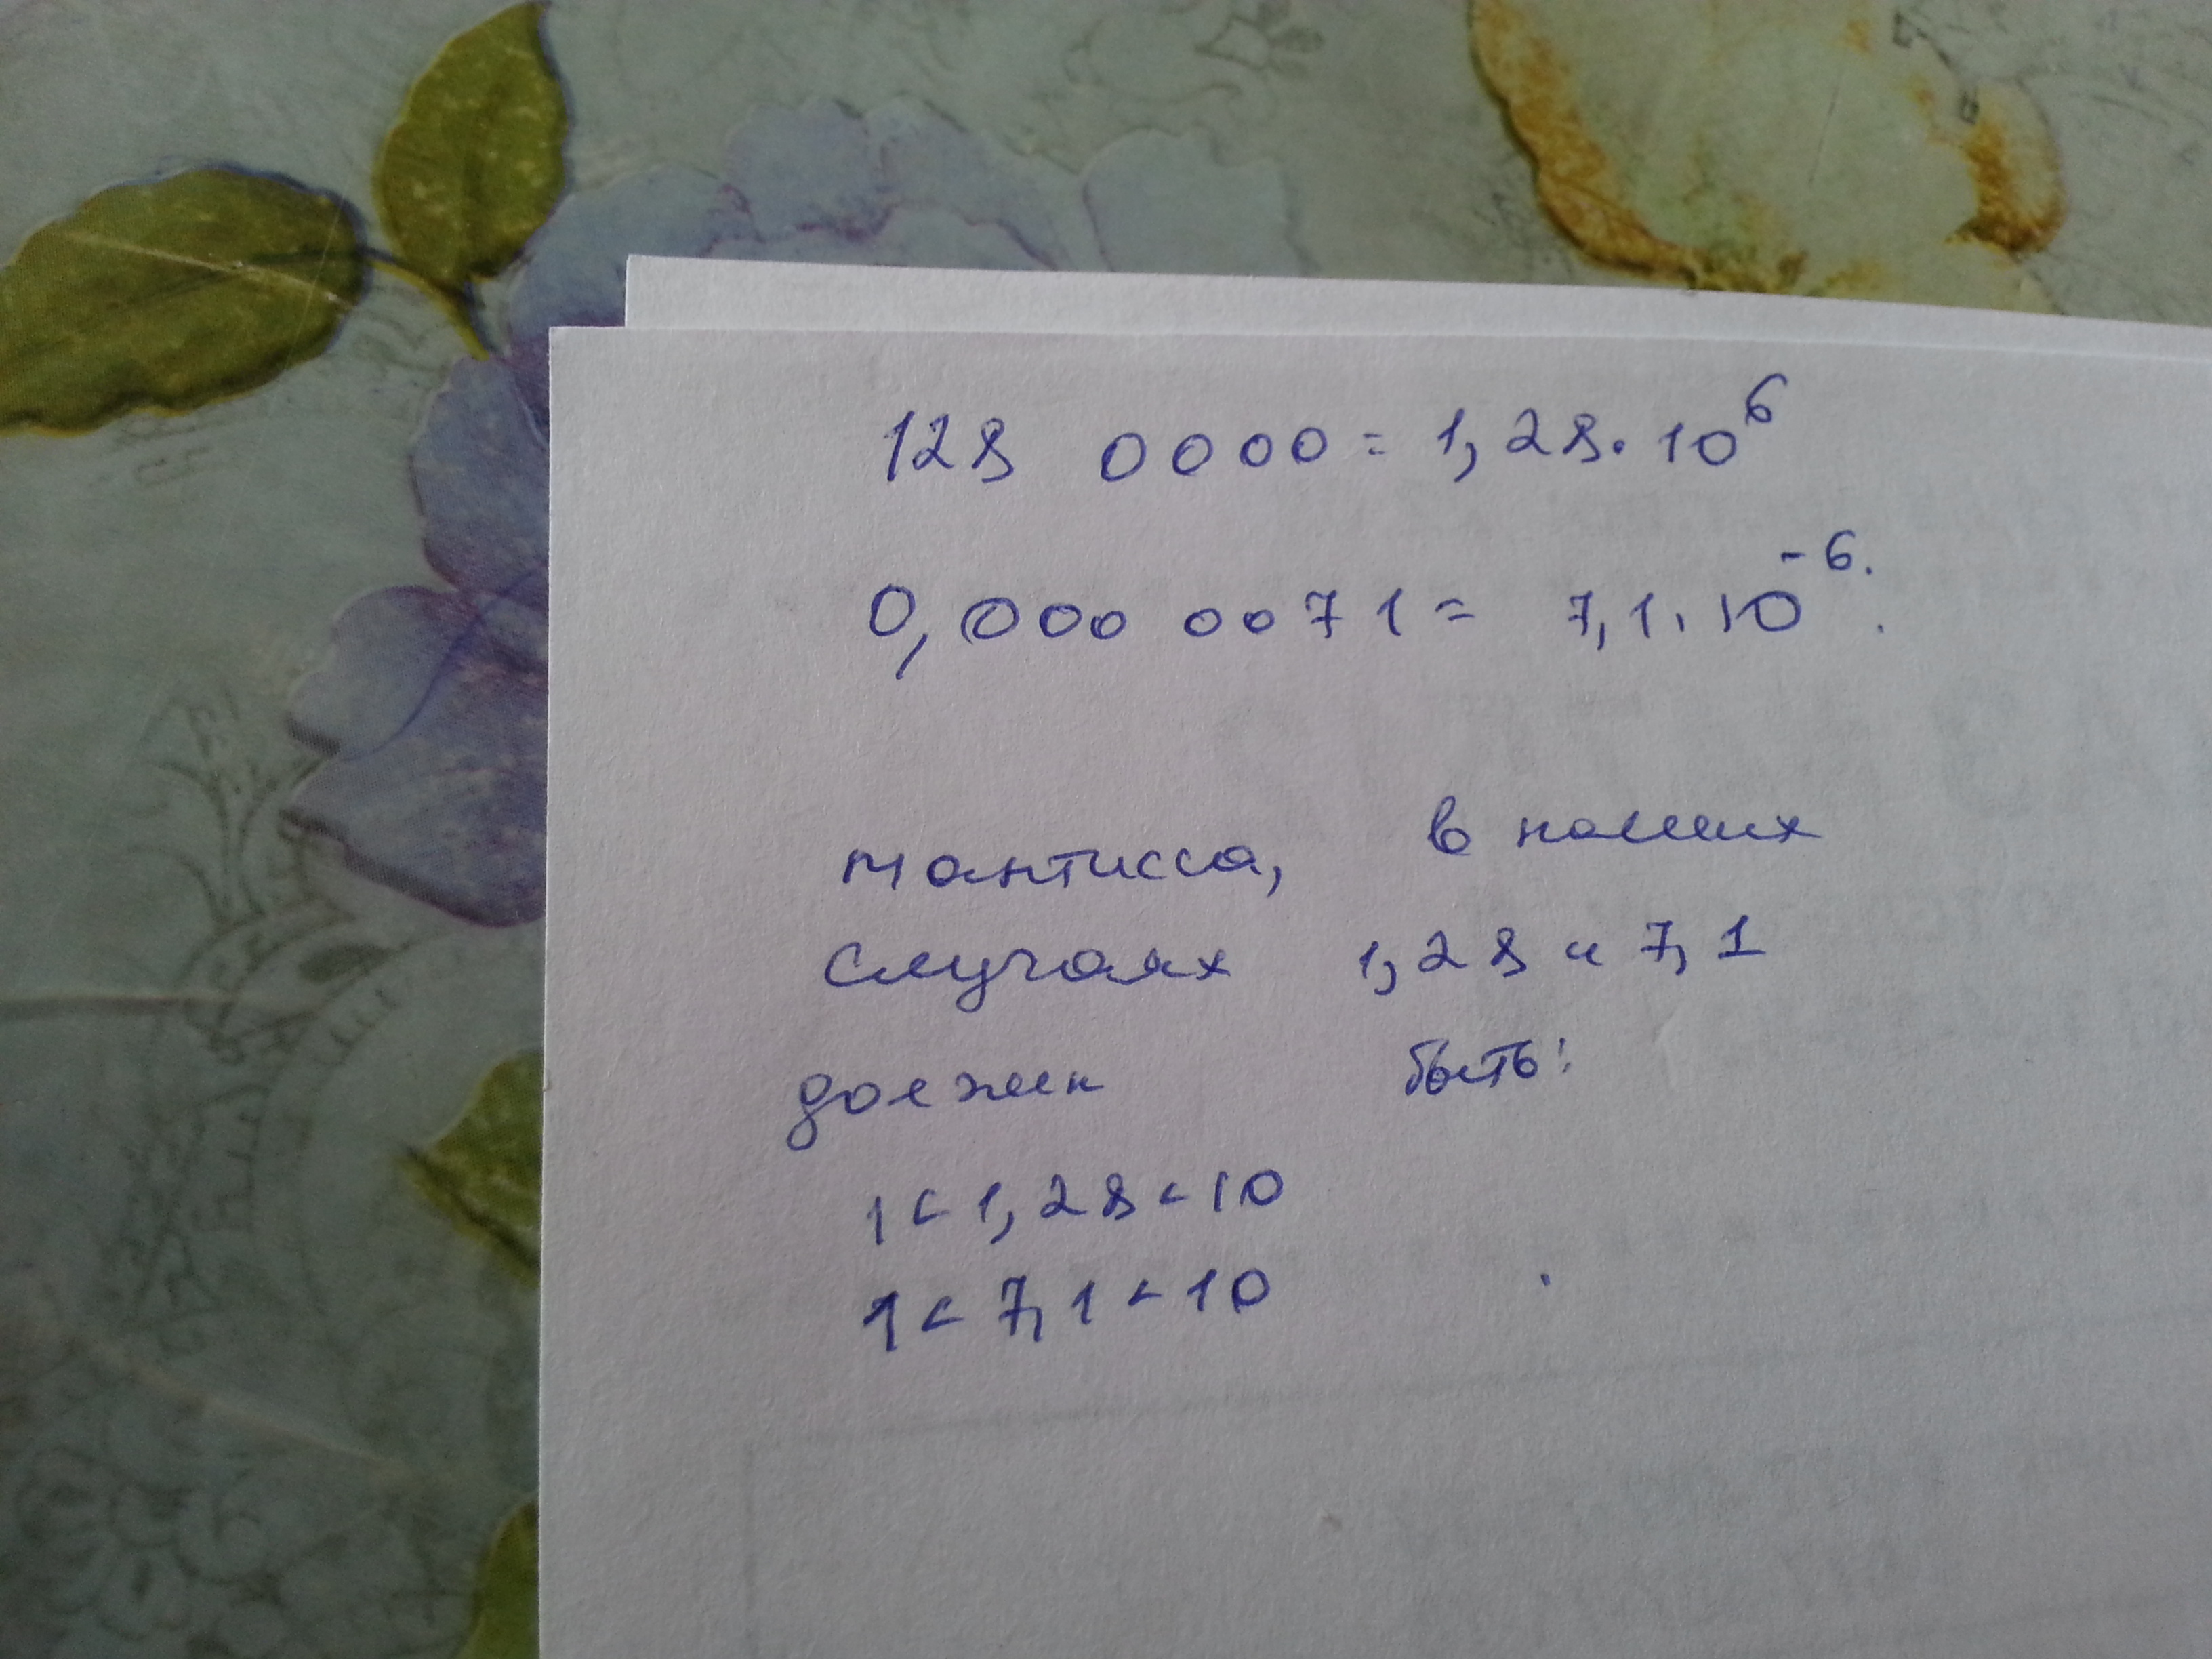 128 0000 = 1,28 · 10⁶
0,000 0071 = 7,1 · 10⁻⁶.
мантисса, в наших
случаях 1,28 и 7,1
должен быть:
1 < 1,28 < 10
1 < 7,1 < 10